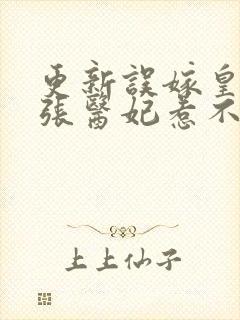 更新誤嫁皇
張醫妃惹不
上上仙子